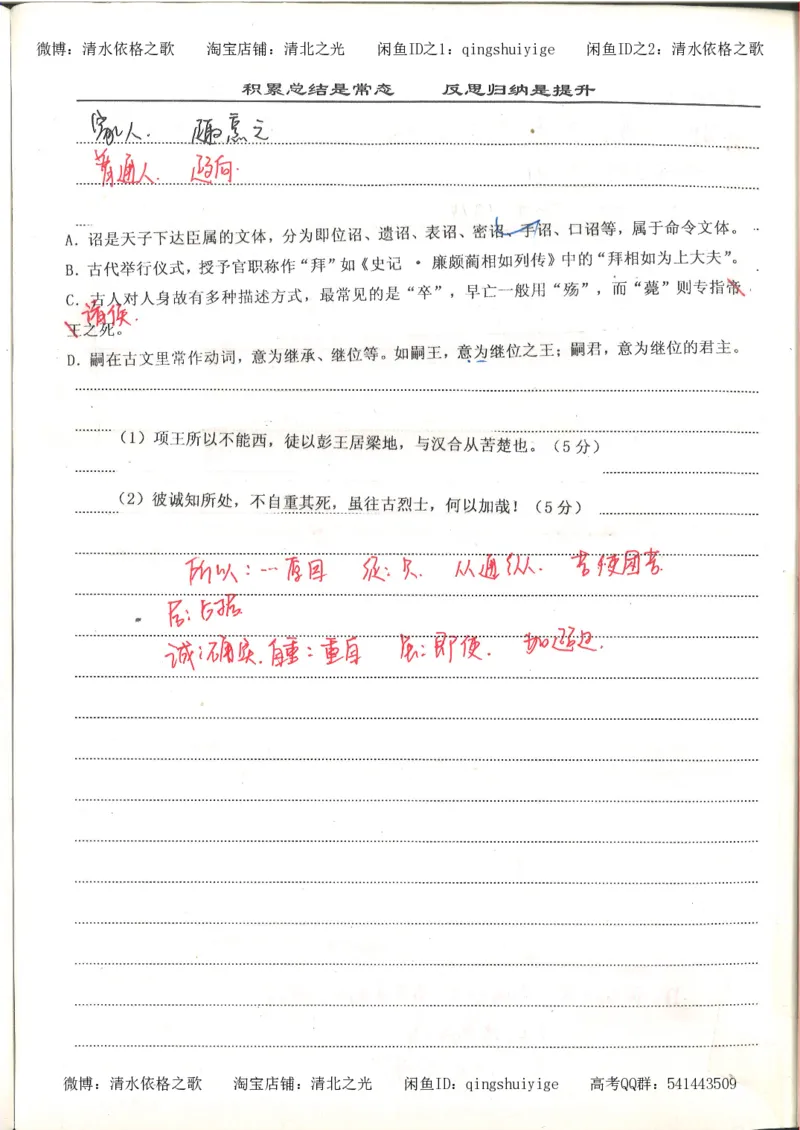 微博：清水依格之歌 淘宝店铺：清北之光 闲鱼ID之1：qingshuiyige 闲鱼ID之2：清水依格之歌
积累总结是常态 反思归纳是提升
家人.
普通人.
A．诏是天子下达臣属的文体，分为即位诏、遗诏、表诏、密诏、手诏、口诏等，属于命令文体。
B．古代举行仪式，授予官职称作“拜”如《史记 · 廉颇蔺相如列传》中的“拜相如为上大夫”。
C．古人对人身故有多种描述方式，最常见的是“卒”，早亡一般用“殇”，而“薨”则专指帝
诸侯.
王之死。
D．嗣在古文里常作动词，意为继承、继位等。如嗣王，意为继位之王；嗣君，意为继位的君主。
（1）项王所以不能西，徒以彭王居梁地，与汉合从苦楚也。（5分）
（2）彼诚知所处，不自重其死，虽往古烈士，何以加哉！（5分）
所以：…原因 从通纵. 苦使困苦.
居：占据
诚：确实. 自重：重自 虽：即使.
微博：清水依格之歌 淘宝店铺：清北之光 闲鱼ID：qingshuiyige 高考QQ群：541443509